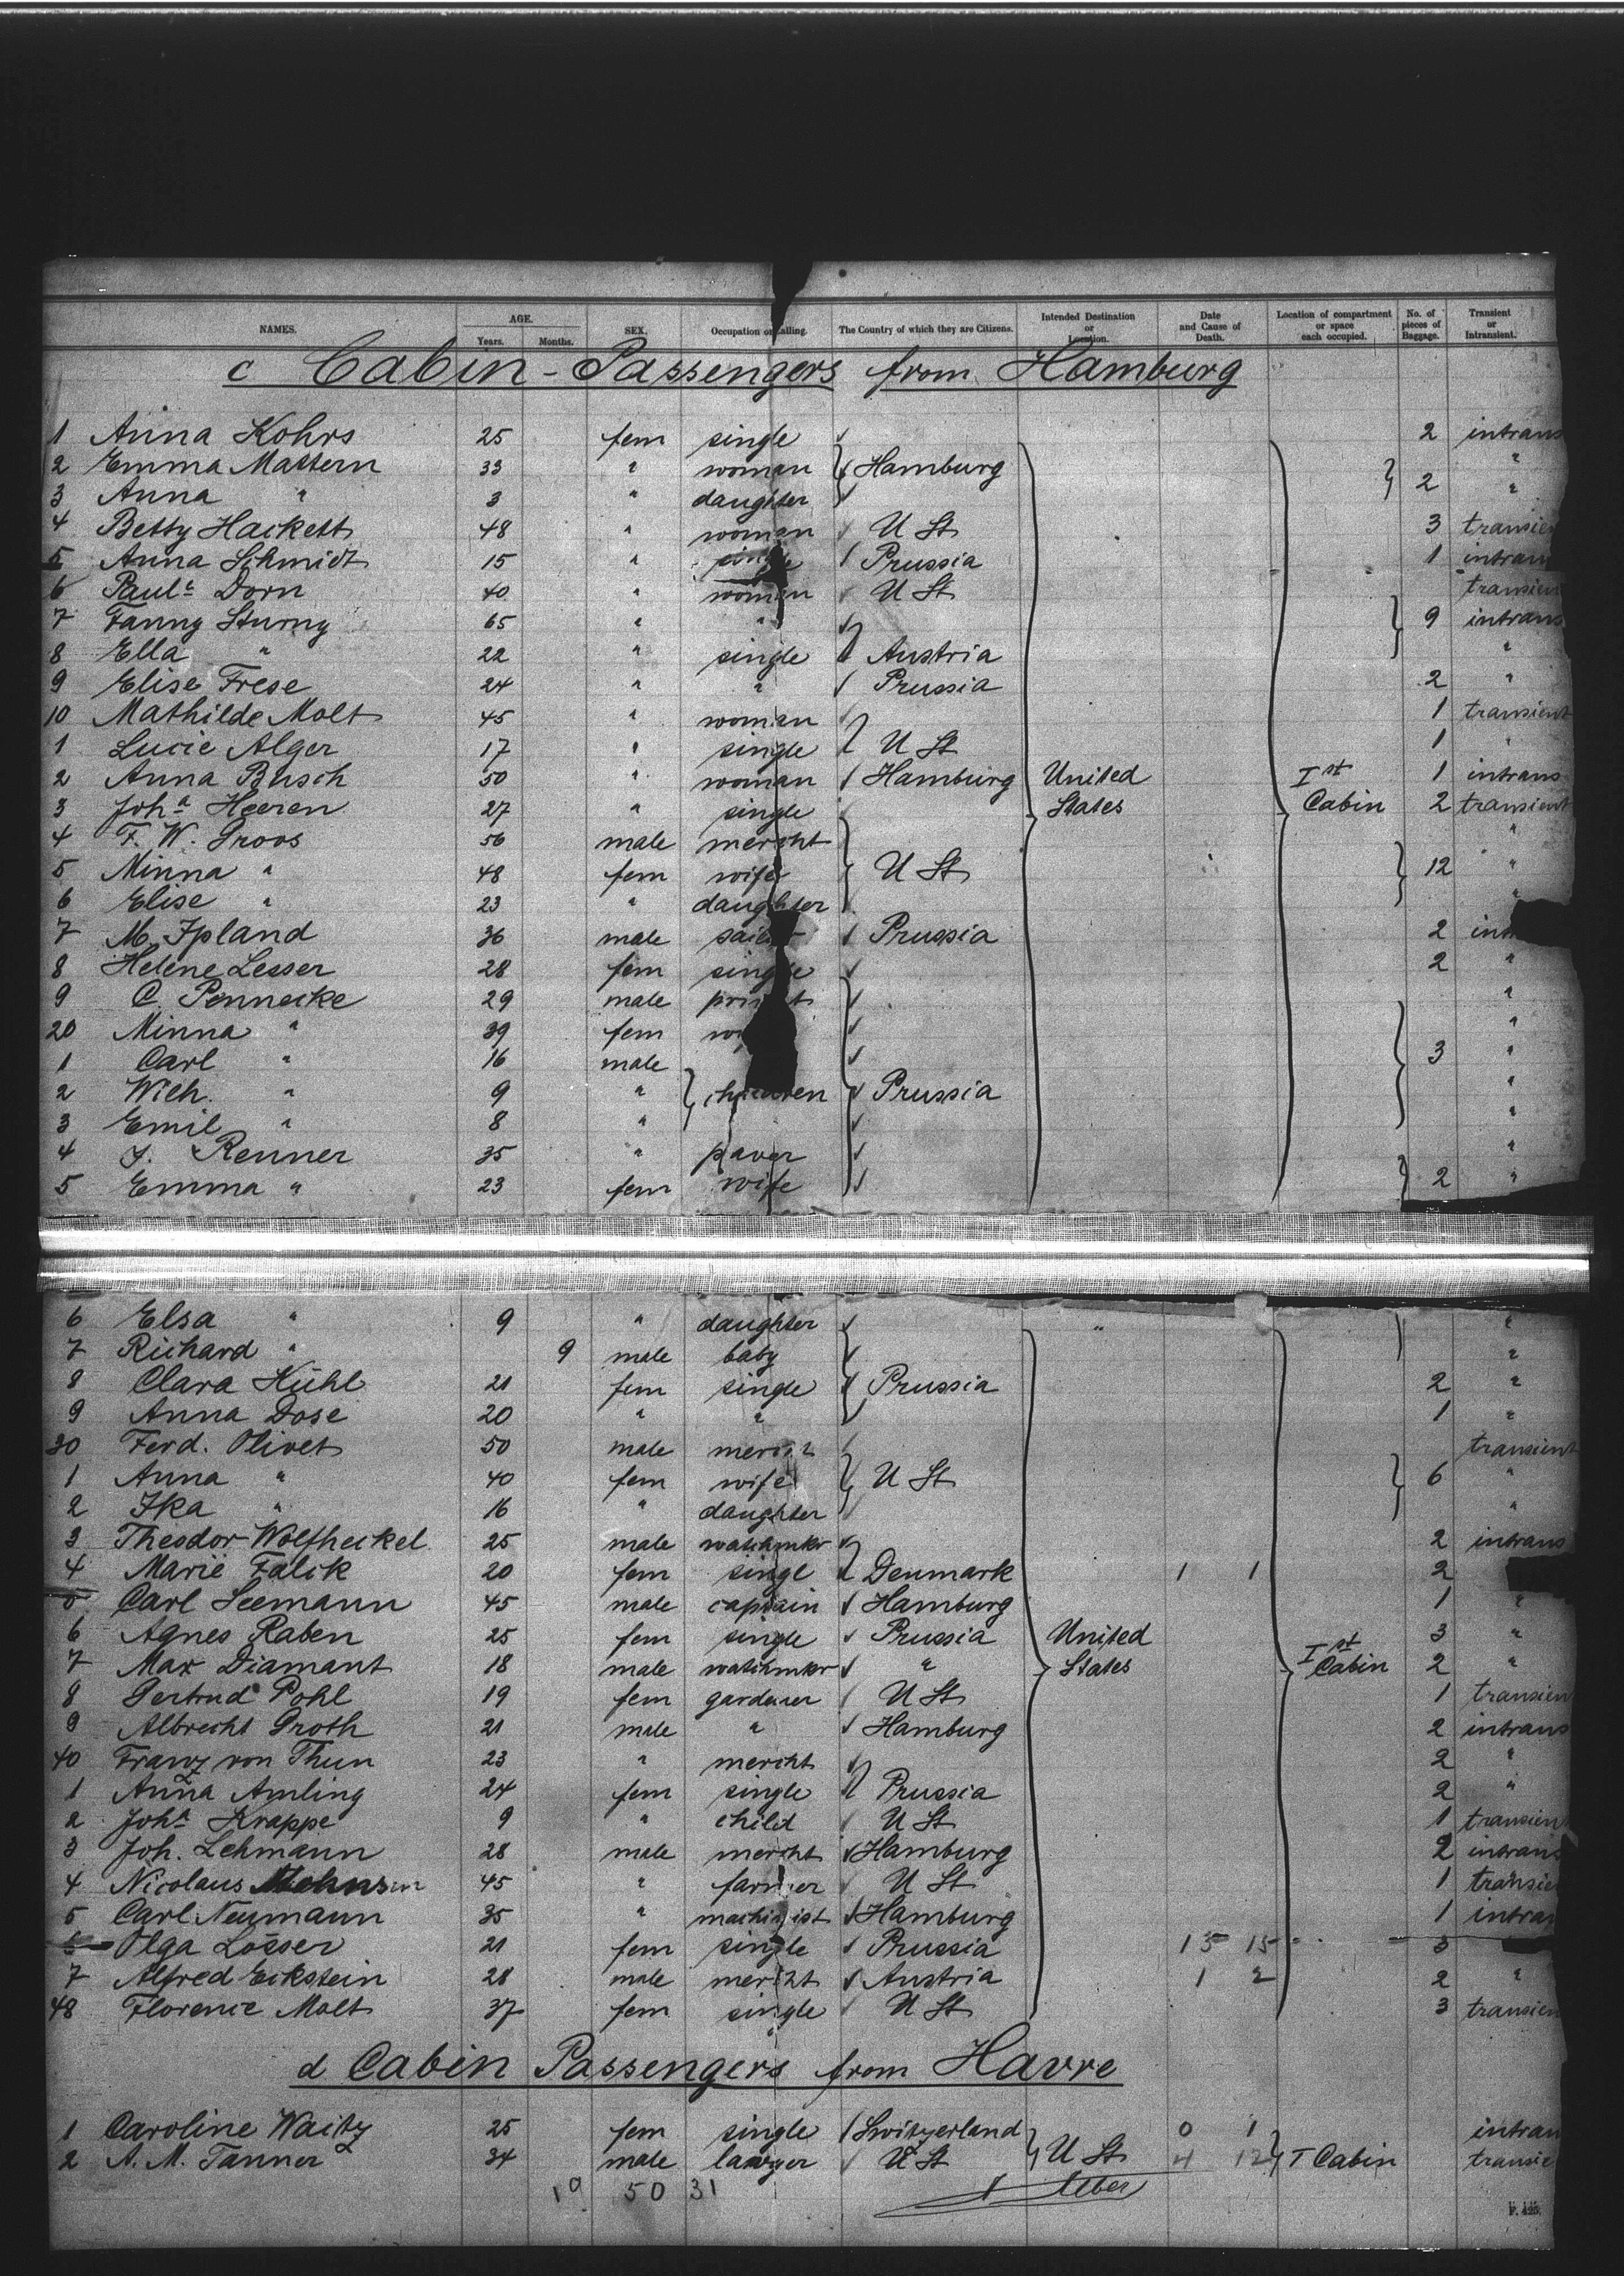 NAMES. AGE. Years. Months. SEX. Occupation or Calling. The Country of which they are Citizens. Intended Destination or Location. Date and Cause of Death. Location of compartment or space each occupied. No. of pieces of Baggage. Transient or Intransient.
c Cabin-Passengers from Hamburg
1 Anna Kohrs 25 fem single 2 intrans
2 Emma Mattern 33 " woman Hamburg "
3 Anna " 3 " daughter 2 "
4 Betty Hackett 48 " woman U St 3 transien
5 Anna Schmidt 15 " single Prussia 1 intran
6 Paula Dorn 40 " woman U St transien
7 Fanny Sturny 65 " " 9 intrans
8 Ella " 22 " single Austria "
9 Elise Frese 24 " " Prussia 2 "
10 Mathilde Molt 45 " woman 1 transient
1 Lucie Alger 17 " single U St 1 "
2 Anna Busch 50 " woman Hamburg United Ist 1 intrans
3 Joha Heeren 27 " single States Cabin 2 transient
4 F. W. Groos 56 male mercht "
5 Minna " 48 fem wife U St 12 "
6 Elise " 23 " daughter "
7 M. Ipland 36 male Prussia 2 int
8 Helene Lesser 28 fem single 2 "
9 C. Pennecke 29 male "
20 Minna " 39 fem "
1 Carl " 16 male 3 "
2 Wilh. " 9 " children Prussia "
3 Emil " 8 " "
4 J. Renner 35 " paver "
5 Emma " 23 fem wife 2 "
6 Elsa " 9 " daughter " "
7 Richard " 9 male baby "
8 Clara Kühl 21 fem single Prussia 2 "
9 Anna Dose 20 " " 1 "
30 Ferd. Olivet 50 male mercht transient
1 Anna " 40 fem wife U St 6 "
2 Ika " 16 " daughter "
3 Theodor Wolfheckel 25 male watchmkr 2 intrans
4 Marie Falck 20 fem singl Denmark 1 1 2
5 Carl Seemann 45 male captain Hamburg 1 "
6 Agnes Raben 25 fem single Prussia United 3 "
7 Max Diamant 18 male watchmkr " States Ist Cabin 2 "
8 Gertrud Pohl 19 fem gardener U St 1 transien
9 Albrecht Groth 21 male " Hamburg 2 intrans
40 Franz von Thun 23 " mercht 2 "
1 Anna Amling 24 fem single Prussia 2 "
2 Joha Krappe 9 " child U St 1 transient
3 Joh. Lehmann 28 male mercht Hamburg 2 intrans
4 Nicolaus 45 " farmer U St 1 transien
5 Carl Neumann 35 " machinist Hamburg 1 intran
6 Olga Lösser 21 fem single Prussia 15 15 3
7 Alfred Eckstein 28 male mercht Austria 1 2 2 "
48 Florence Molt 37 fem single U St 3 transien
d Cabin Passengers from Havre
1 Caroline Waitz 25 fem single Switzerland 0 1 intran
2 A. M. Tanner 34 male lawyer U St U St 4 12 I Cabin transie
19 50 31
F. 425.